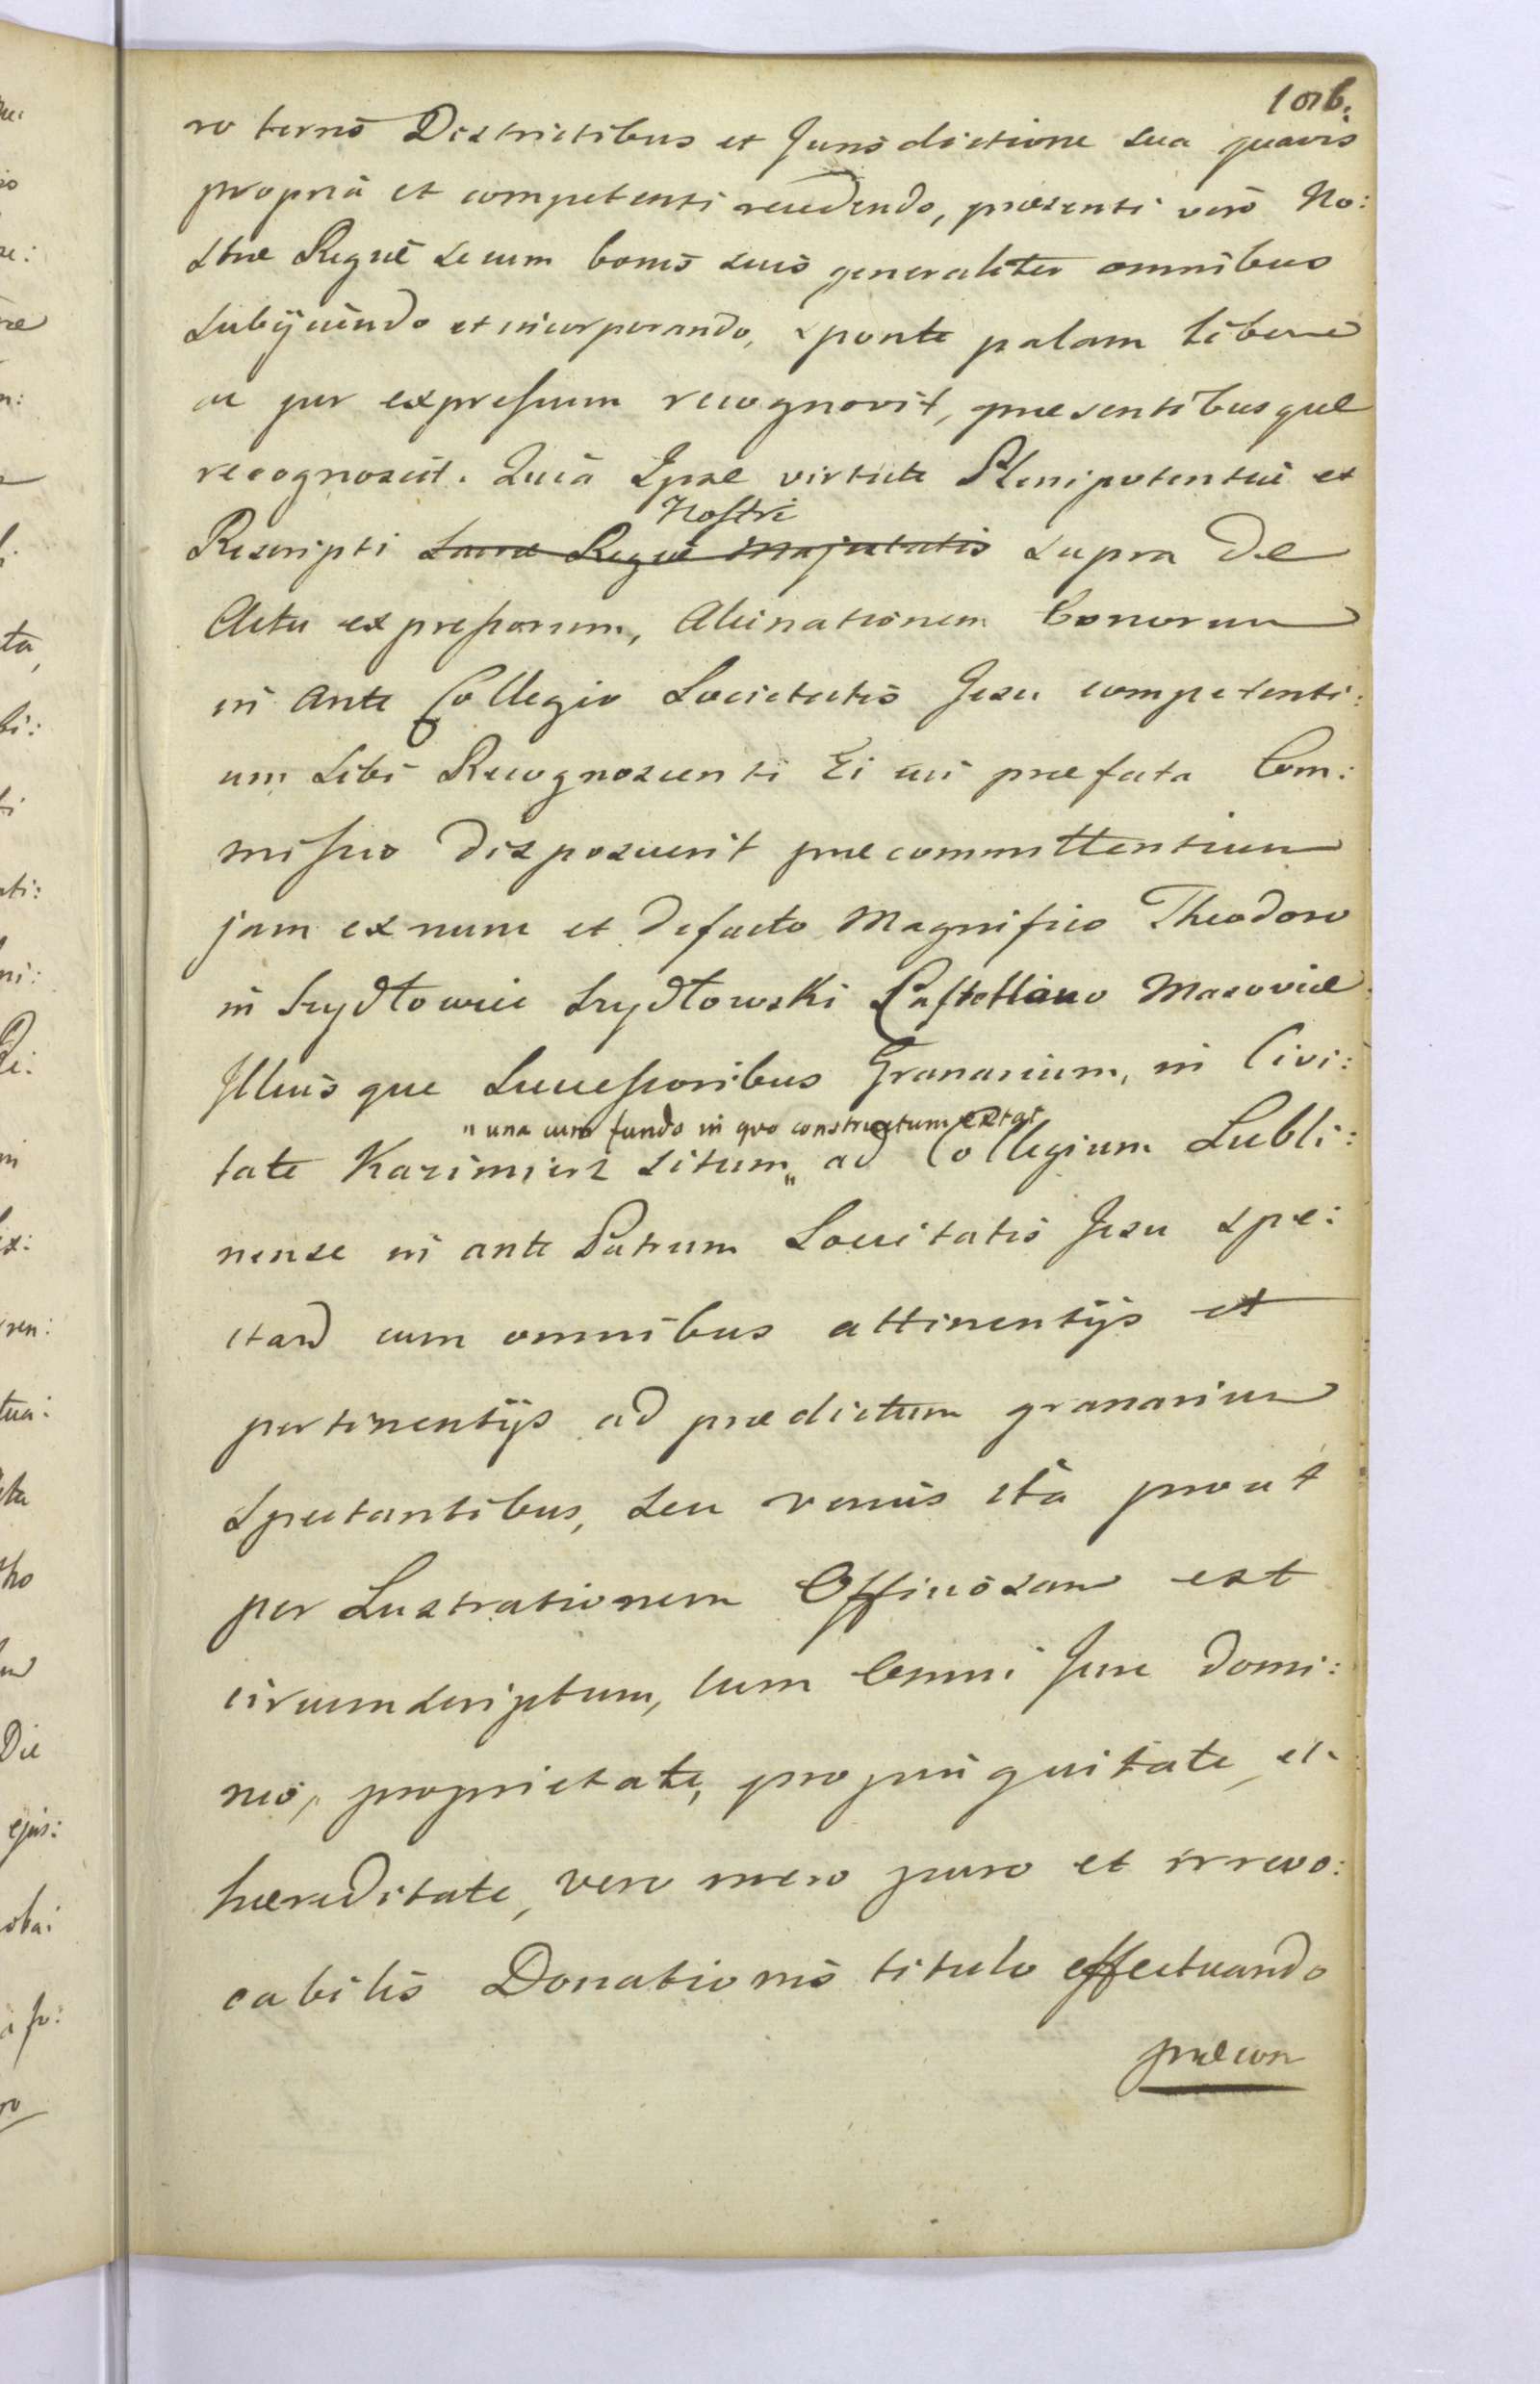 1016.
ro terris Districtibus et Jurisdictione sua quavis
propria et competenti recedendo, præsenti vero No:
stræ Regiæ se cum bonis suis generaliter omnibus
subijciendo et incorporando, sponte palam libere
ac per expressum recognovit, præsentibusque
recognoscit. Quia Ipse virtute Plenipotentiæ et
Nostri
Rescripti Sacræ Regiæ Majestatis supra de
Actu expressorum, Alienationem bonorum
in ante Collegio Societatis Jesu competenti:
um sibi Recognoscenti Ei cui præfata Com:
missio disposuerit præcommittentium
jam ex nunc et defacto Magnifico Theodoro
in Szydłowiec Szydłowski Castellano Masoviæ
Illiusque Successoribus Granarium, in Civi:
"una cum fundo in quo constructum extat
tate Kazimierz situm" ad Collegium Lubli:
nense in ante Patrum Societatis Jesu spe:
ctans cum omnibus attinentijs et
pertinentijs ad prædictum granarium
spectantibus, seu verius ita prout
per Lustrationem Officiosam est
circumscriptum, cum Omni Jure domi:
nio, proprietate, propinquitate, et
hæreditate, vero mero puro et irrevo:
cabilis Donationis titulo effectuando
præcon